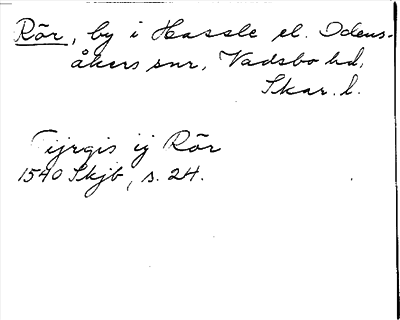 Rör, by i Hassle el. Odens-
åkers snr, Vadsbo hd,
Skar. l.
Tijrgis ij Rör
1540 Skjb, s. 24.